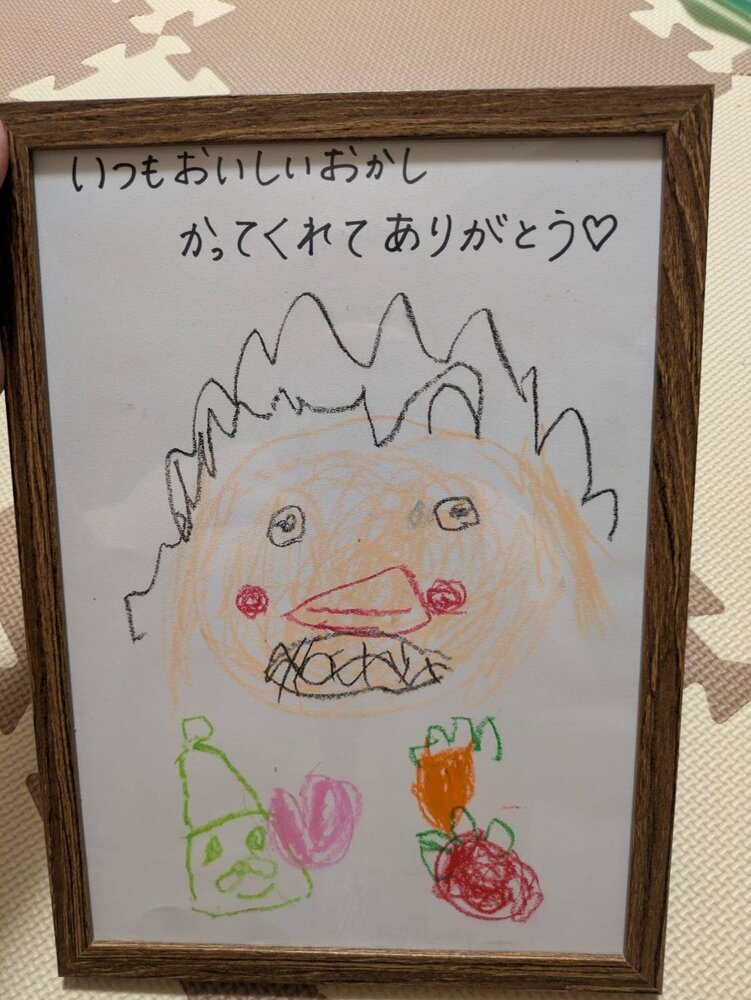 いつもおいしいおかし
かってくれてありがとう♡